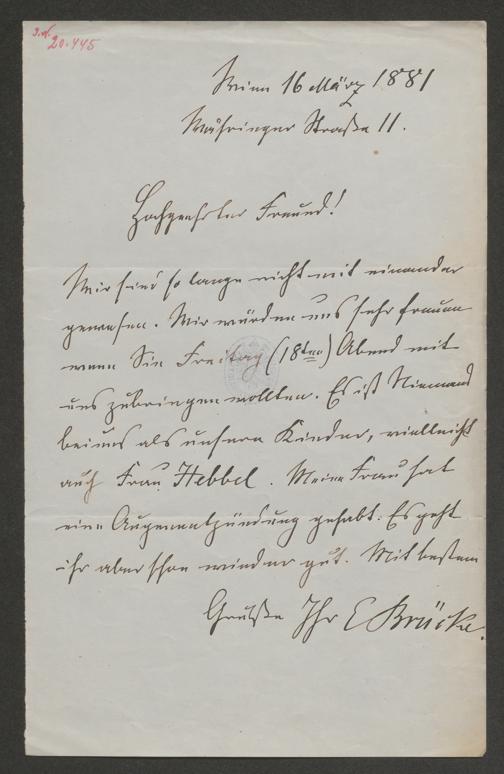 I.N. 20.445
Wien 16 März 1881
Währinger Straße 11.
Hochgeehrter Freund!
Wir sind so lange nicht mit einander
gewesen. Wir würden uns sehr freuen
wenn Sie Freitag (18ten) Abend mit
uns zubringen wollten. Es ist Niemand
bei uns als unsere Kinder, vielleicht
auch Frau Hebbel. Meine Frau hat
eine Augenentzündung gehabt. Es geht
ihr aber schon wieder gut. Mit bestem
Gruße Ihr E Brücke.